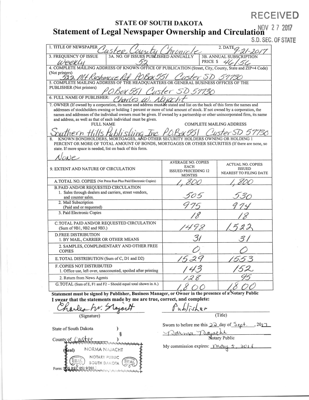 RECEIVED
NOV 27 2017
S.D. SEC. OF STATE
STATE OF SOUTH DAKOTA
Statement of Legal Newspaper Ownership and Circulation
1. TITLE OF NEWSPAPER Custer County Chronicle 2. DATE 9-21-2017
3. FREQUENCY OF ISSUE 5A. NO. OF ISSUES PUBLISHED ANNUALLY 5B. ANNUAL SUBSCRIPTION
weekly 52 PRICE $
4. COMPLETE MAILING ADDRESS OF KNOWN OFFICE OF PUBLICATION (Street, City, County, State and ZIP+4 Code)
(Not printers)
Mt Rushmore Rd, PO Box 551 Custer SD 57730
5. COMPLETE MAILING ADDRESS OF THE HEADQUARTERS OR GENERAL BUSINESS OFFICES OF THE
PUBLISHER (Not printer)
PO Box 551 Custer SD 57730
6. FULL NAME OF PUBLISHER:
Charles W. Najacht
7. OWNER (If owned by a corporation, its name and address must be stated and list on the back of this form the names and
addresses of stockholders owning or holding 1 percent or more of total amount of stock. If not owned by a corporation, the
names and addresses of the individual owners must be given. If owned by a partnership or other unincorporated firm, its name
and address, as well as that of each individual must be given.
FULL NAME COMPLETE MAILING ADDRESS
Southern Hills Publishing Inc. PO Box 551 Custer SD 57730
8. KNOWN BONDHOLDERS, MORTGAGES, AND OTHER SECURITY HOLDERS OWNING OR HOLDING 1
PERCENT OR MORE OF TOTAL AMOUNT OF BONDS, MORTGAGES OR OTHER SECURITIES (If there are none, so
state. If more space is needed, list on back of this form.
None
9. EXTENT AND NATURE OF CIRCULATION AVERAGE NO. COPIES EACH ISSUED PRECEDING 12 MONTHS ACTUAL NO. COPIES ISSUED NEAREST TO FILING DATE
A. TOTAL NO. COPIES 1,800 1,800
B. PAID AND/OR REQUESTED CIRCULATION
1. Sales through dealers and carriers, street vendors,
and counter sales. 505 530
2. Mail Subscription
(Paid and or requested) 975 974
3. Paid Electronic Copies 18 18
C. TOTAL PAID AND/OR REQUESTED CIRCULATION
(Sum of 9B1, 9B2 and 9B3.) 1498 1522
D. FREE DISTRIBUTION
1. BY MAIL, CARRIER OR OTHER MEANS 31 31
2. SAMPLES, COMPLIMENTARY AND OTHER FREE
COPIES 0 0
E. TOTAL DISTRIBUTION (Sum of C, D1 and D2) 1529 1553
F. COPIES NOT DISTRIBUTED
1. Office use, left over, unaccounted, spoiled after printing 143 152
2. Return from News Agents 128 95
G. TOTAL 1800 1800
Statement must be signed by Publisher, Business Manager, or Owner in the presence of a Notary Public
I swear that the statements made by me are true, correct, and complete:
Charles W. Najacht Publisher
(Signature) (Title)
State of South Dakota ) Sworn to before me this 22 day of Sept 2017
County of Custer Norma Najacht
Notary Public
NORMA NAJACHT
NOTARY PUBLIC
SOUTH DAKOTA
My commission expires: